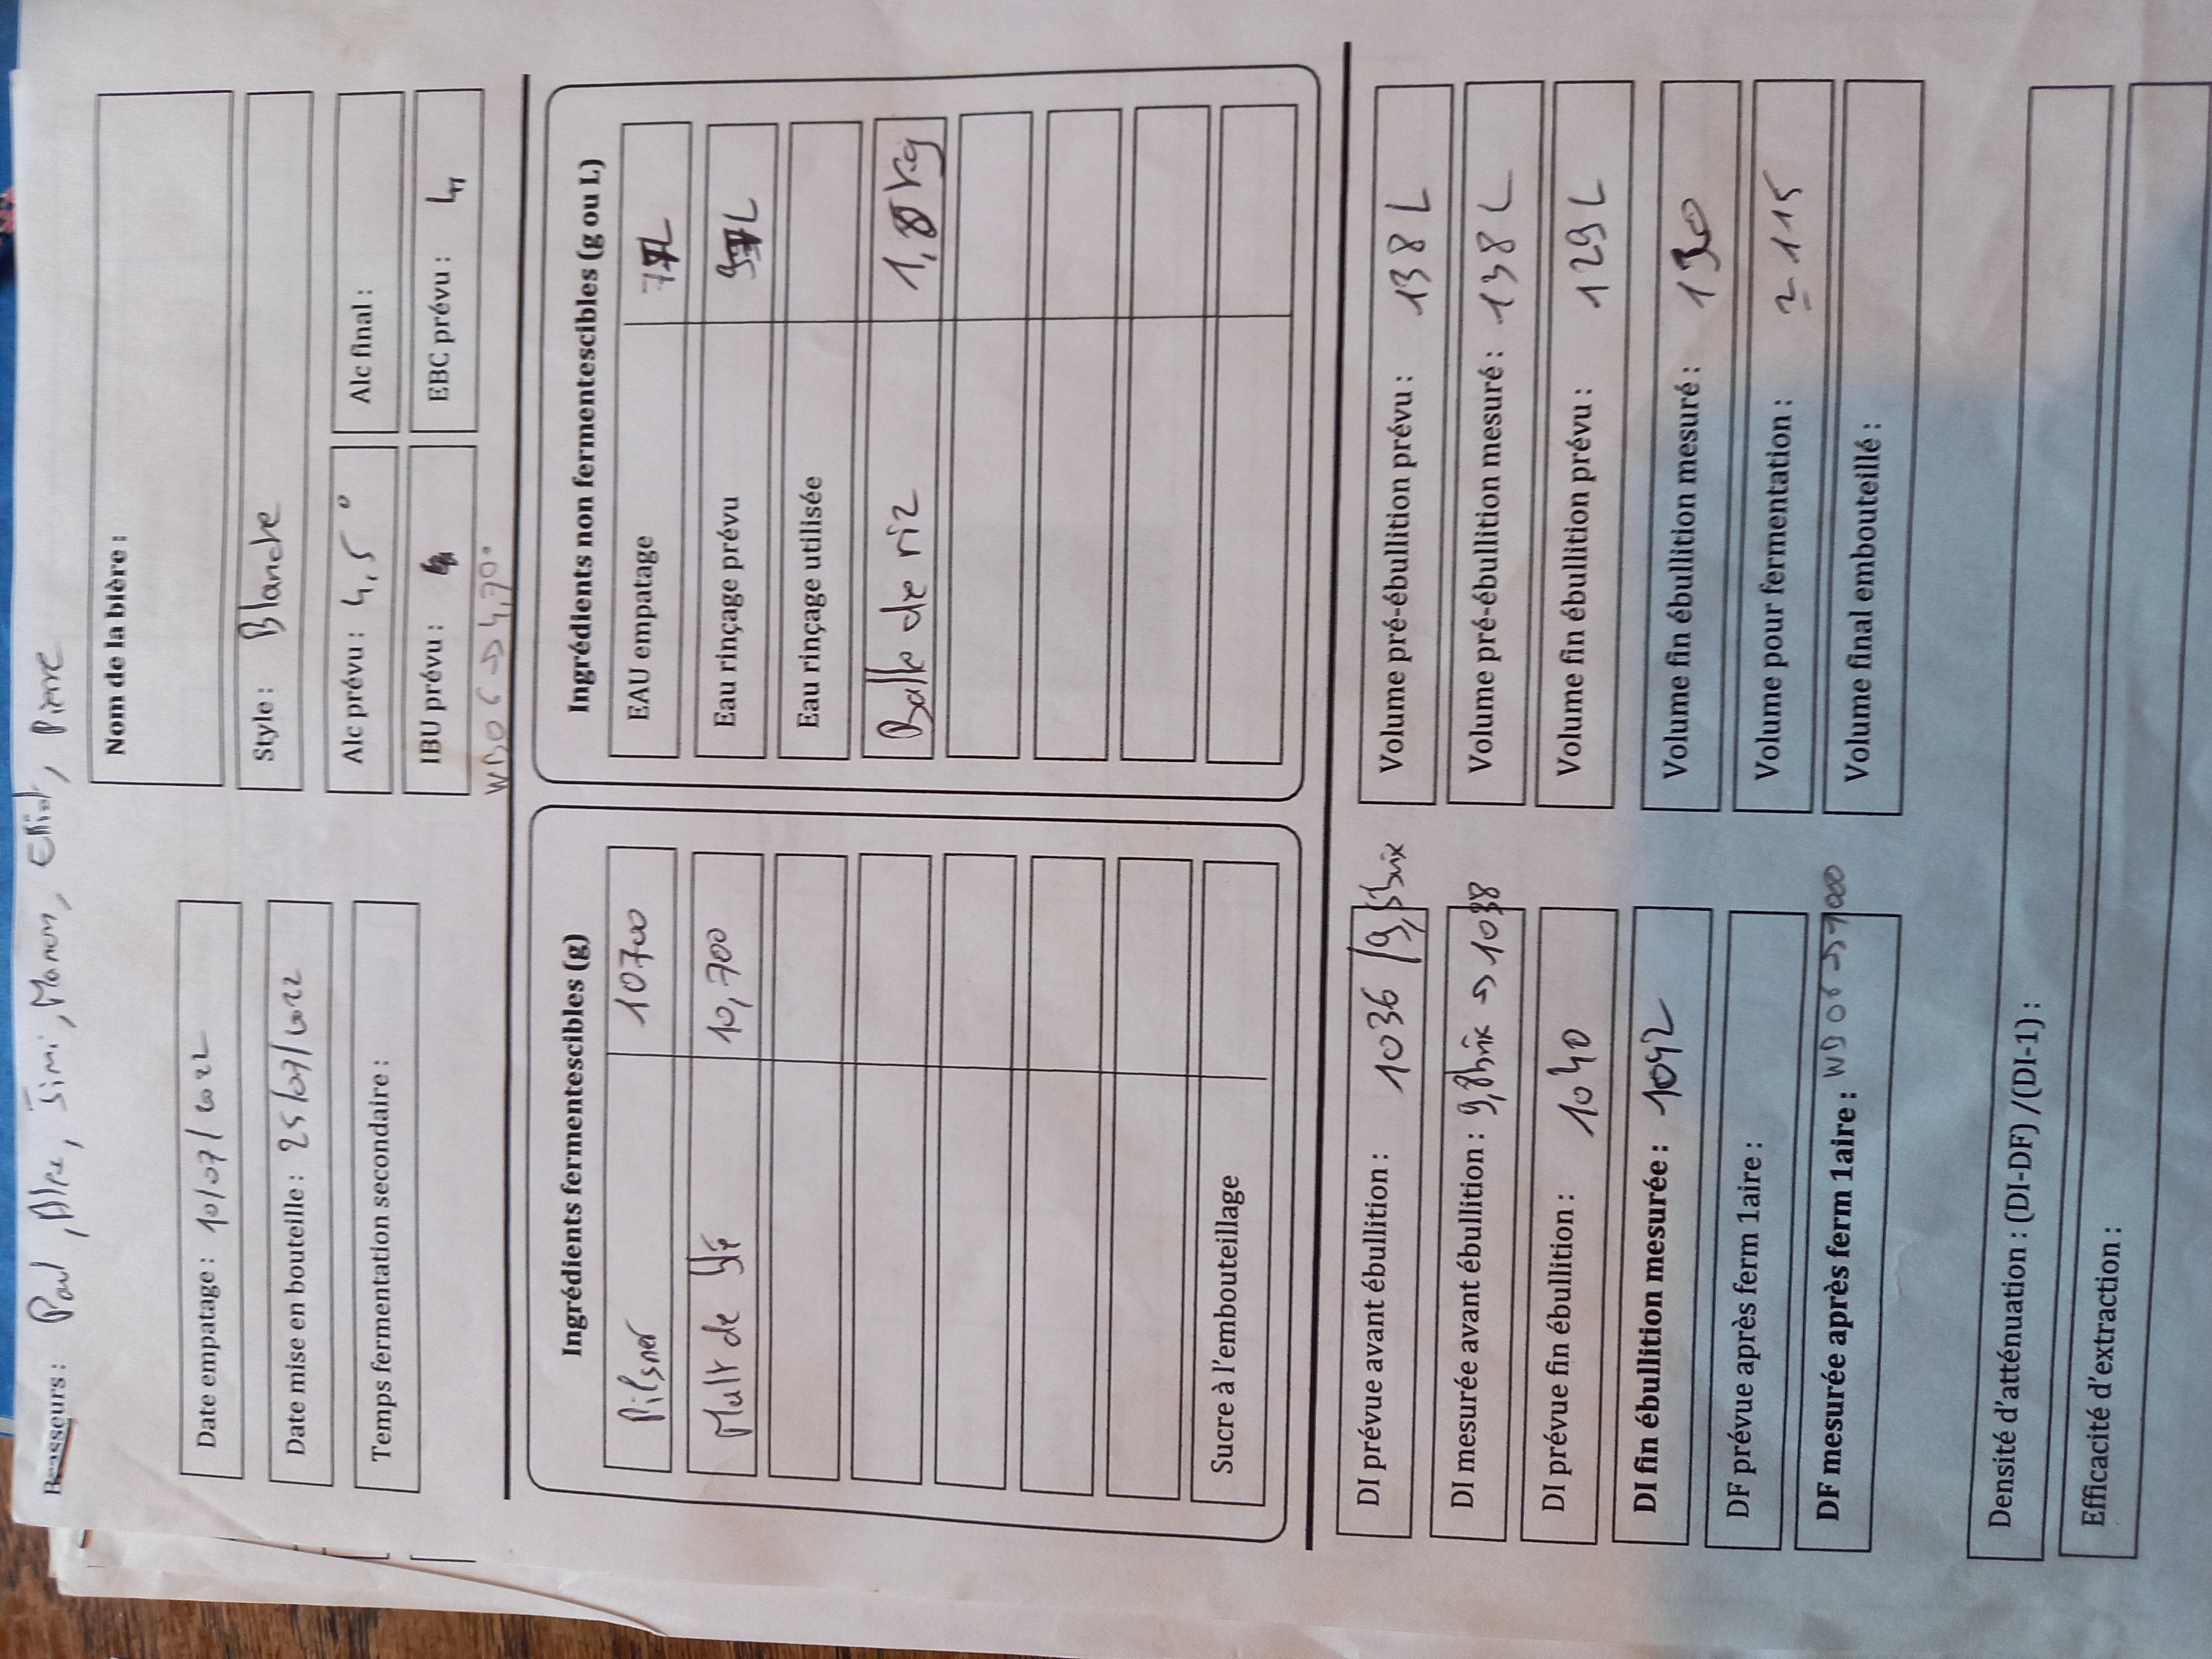 Brasseurs : Paul, Alex, Jimi, Manon, Elliot, Pierre
Nom de la bière :
Date empatage : 10/07/2022
Style : Blanche
Date mise en bouteille : 25/07/2022
Alc prévu : 4,5 °
Alc final :
Temps fermentation secondaire :
IBU prévu :
EBC prévu : 4
WB06 → 4,70°
Ingrédients fermentescibles (g)
Pilsner 10700
Malt de blé 10,700
Sucre à l'embouteillage
Ingrédients non fermentescibles (g ou L)
EAU empatage
Eau rinçage prévu
Eau rinçage utilisée
Balle de riz
DI prévue avant ébullition : 1036
DI mesurée avant ébullition : 9,8brix → 1038
DI prévue fin ébullition : 1040
DI fin ébullition mesurée : 1042
DF prévue après ferm 1aire :
DF mesurée après ferm 1aire : WB06 → 1000
Volume pré-ébullition prévu : 138 L
Volume pré-ébullition mesuré : 138 L
Volume fin ébullition prévu : 129 L
Volume fin ébullition mesuré : 130
Volume pour fermentation : ≃ 115
Volume final embouteillé :
Densité d'atténuation : (DI-DF) /(DI-1) :
Efficacité d'extraction :